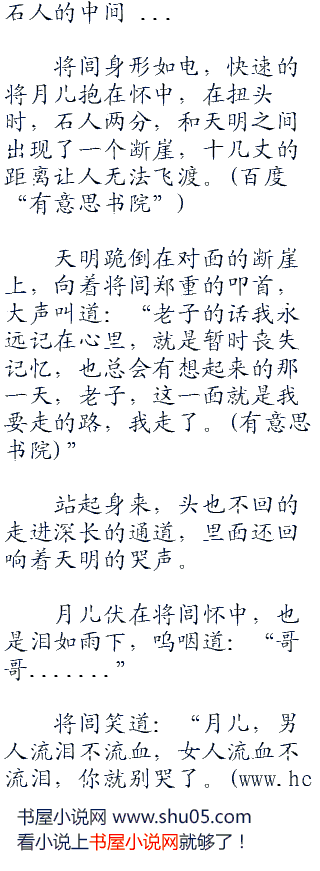 石人的中间 ...
将闾身形如电，快速的
将月儿抱在怀中，在扭头
时，石人两分，和天明之间
出现了一个断崖，十几丈的
距离让人无法飞渡。(百度
“有意思书院”)
天明跪倒在对面的断崖
上，向着将闾郑重的叩首，
大声叫道：“老子的话我永
远记在心里，就是暂时丧失
记忆，也总会有想起来的那
一天，老子，这一面就是我
要走的路，我走了。(有意思
书院)”
站起身来，头也不回的
走进深长的通道，里面还回
响着天明的哭声。
月儿伏在将闾怀中，也
是泪如雨下，呜咽道：“哥
哥.......”
将闾笑道：“月儿，男
人流泪不流血，女人流血不
流泪，你就别哭了。(www.hc
书屋小说网 www.shu05.com
看小说上书屋小说网就够了！